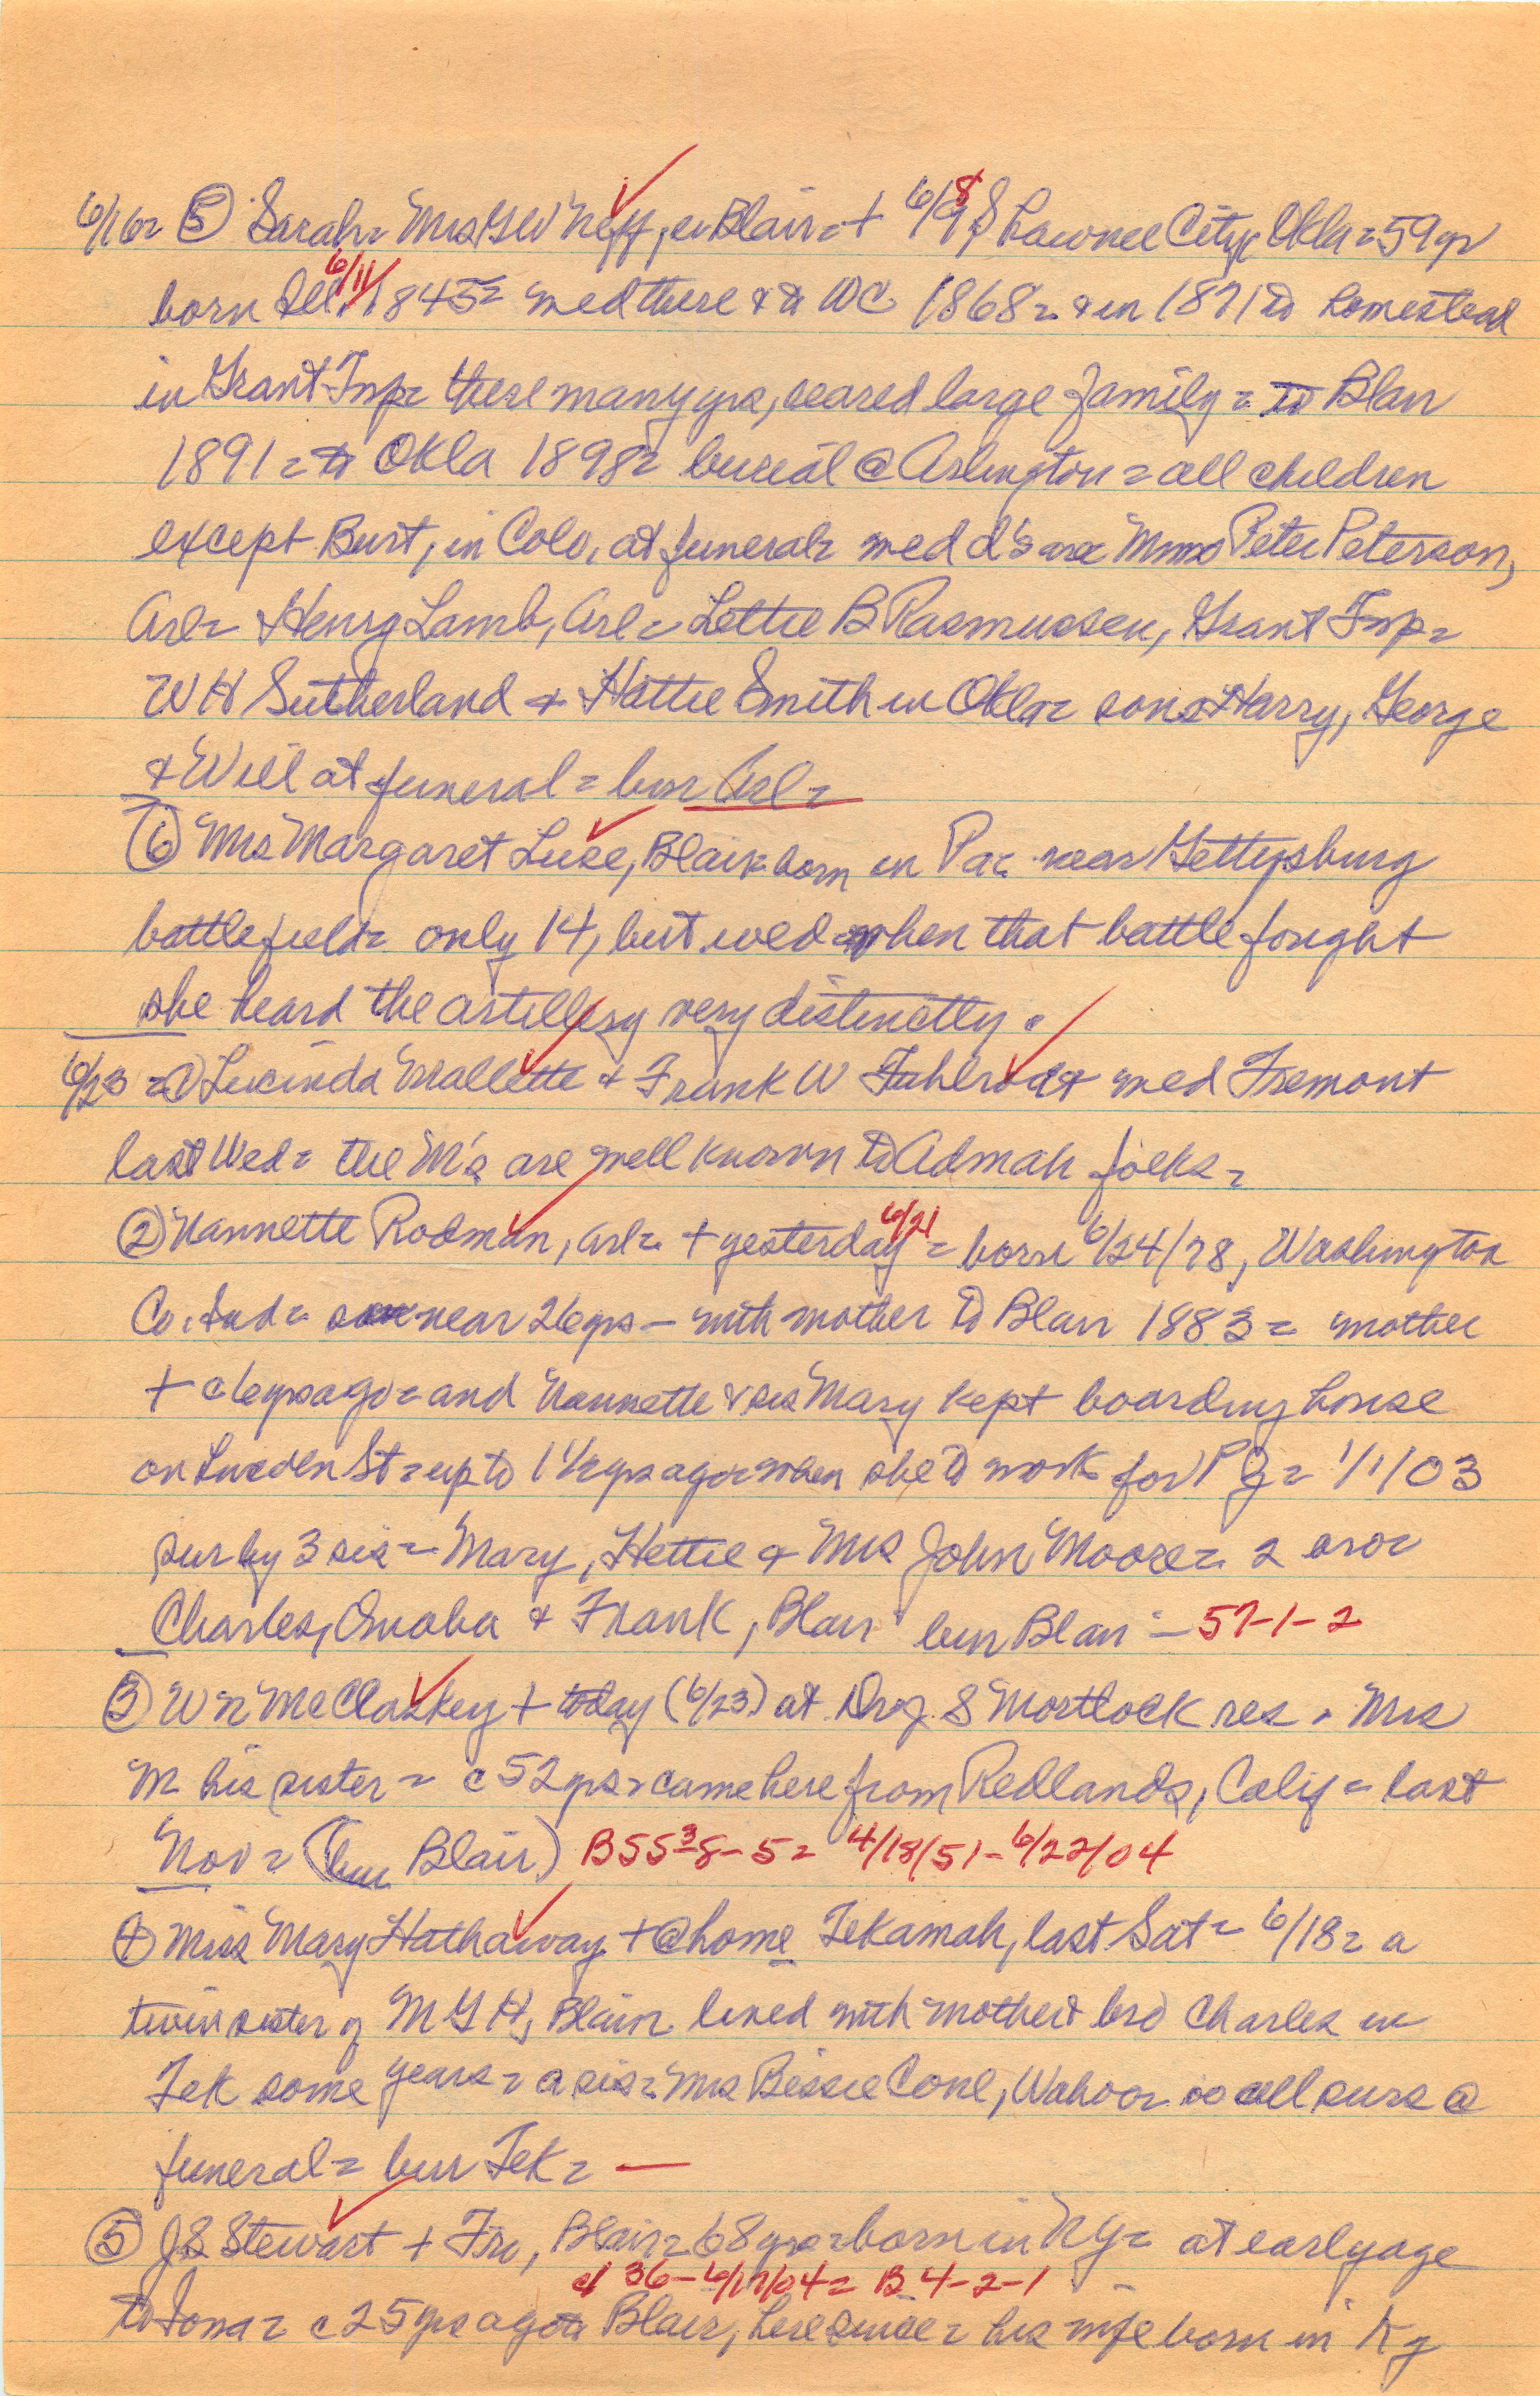 6/16= ⑤ Sarah= Mrs G W Neff, ex Blair= + 6/9 8 Pawnee City, Okla= 59 yr
born Ill. 6/11 1845= med there & to WC 1868= & in 1871 to homestead
in Grant Twp= these many yrs, reared large family= to Blair
1891= to Okla 1898= burial @ Arlington= all children
except Burt, in Colo, at funeral= med d's are Mmes Peter Peterson,
Arl= Henry Lamb, Arl= Lettie B Rasmussen, Grant Twp=
W H Sutherland & Hattie Smith in Okla= sons Harry, George
& Will at funeral= bur Arl=
⑥ Mrs Margaret Luse, Blair= born in Pa= near Gettysburg
battlefield= only 14, but wed when that battle fought
she heard the artillery very distinctly.
6/23= ① Lucinda Mallette & Frank W Fahlrodt med Fremont
last Wed= the M's are well known to Admah folks=
② Nannette Rodman, Arl= + yesterday 6/21= born 6/24/78, Washington
Co. Ind= near 26 yrs – with mother to Blair 1883= mother
+ c 6 yrs ago= and Nannette & sis Mary kept boarding house
on St= up to 1 1/2 yrs ago= when she to work for P G= 1/1/03
sur by 3 sis= Mary, Hettie & Mrs John Moore= 2 bro=
Charles, Omaha & Frank, Blair bur Blair – 57-1-2
③ W N McClaskey + today (6/23) at Dr J S Mortlock res. Mrs
M his sister= c 52 yrs= came here from Redlands, Calif= last
Nov= (bur Blair) B55-3-8-5= 4/18/51-6/22/04
④ Miss Mary Hathaway + @ home Tekamah, last Sat= 6/18= a
twin sister of M G H, Blair= lived with mother & bro Charles in
Tek some years= a sis= Mrs Bessie Cone, Wahoo= all surs @
funeral= bur Tek= —
⑤ J S Stewart + Fri, Blair= 68 yrs= born in N Y= at early age
c/ 36-6/17/04= B 4-2-1
to Iowa= c 25 yrs ago to Blair, here since= his wife born in Ky